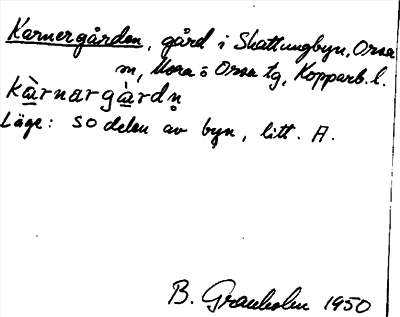 Karnergården, gård i Skattungbyn, Orsa
sn, Mora o Orsa tg, Kopparb. l.
kà̱rnargà̱rdn̥
Läge: SO delen av byn, litt. A.
B. Granholm 1950